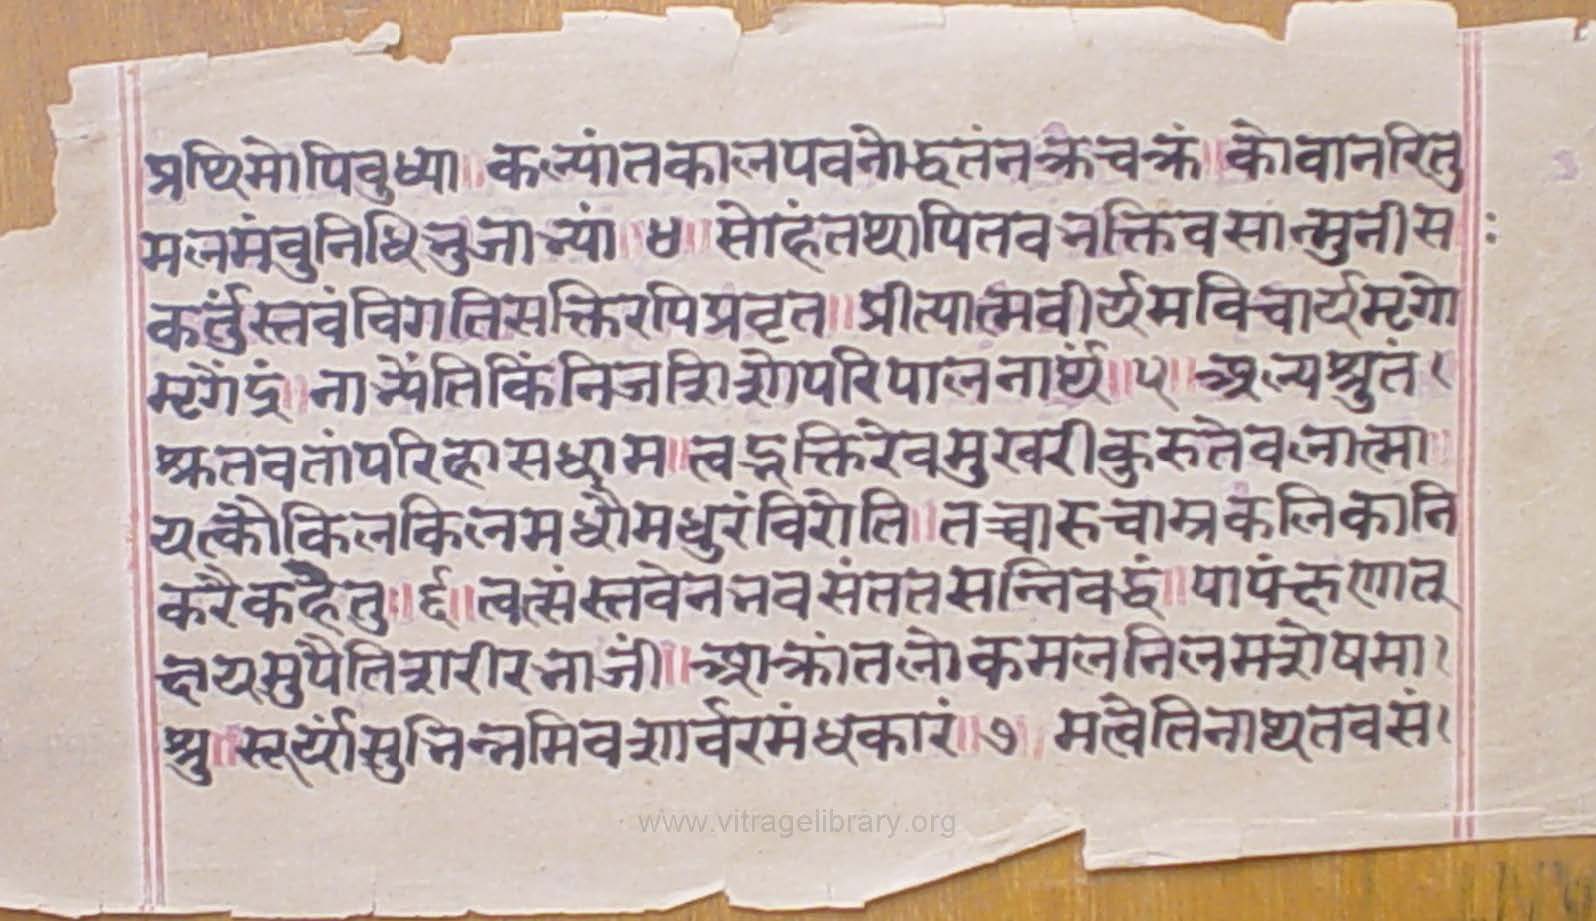 प्रथिमोपिवुध्या॥कल्पांतकालपवनोद्धतंनक्रचक्रं॥कोवानरितु
मलमंवुनिधिभुजाभ्यां॥४॥सोहंतथापितवभक्तिवसान्मुनीस :
कर्तुंस्तवंविगतिसक्तिरपिप्रवृत॥प्रीत्यात्मवीर्यमविचार्यमृगो
मृगेंद्रं॥नाभ्यैंतिकिंनिजशिशोपरिपालनार्थं॥५॥अल्पश्रुतं।
श्रुतवतांपरिहासधाम॥त्वद्भक्तिरेवमुखरीकुरुतेवलात्मा॥
यत्कोकिलकिलमधौमधुरंविरोति॥तच्चारुचाम्रकलिकानि
करैकहेतु॥६॥त्वत्संस्तवेनभवसंततसन्निवद्धं॥पापंक्षणात्
क्षयमुपैतिशरीरभाजां॥आक्रांतलोकमलनिलमशेषमा।
श्रु॥सूर्यांसुभिन्नमिवशार्वरमंधकारं॥७॥मत्वेतिनाथतवसं।
www.vitragelibrary.org